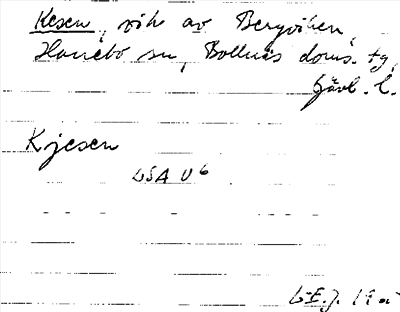 Kesen, vik av Bergviken,
Hanebo sn, Bollnäs doms. tg,
Gävl. l.
Kjesen
LSA U6